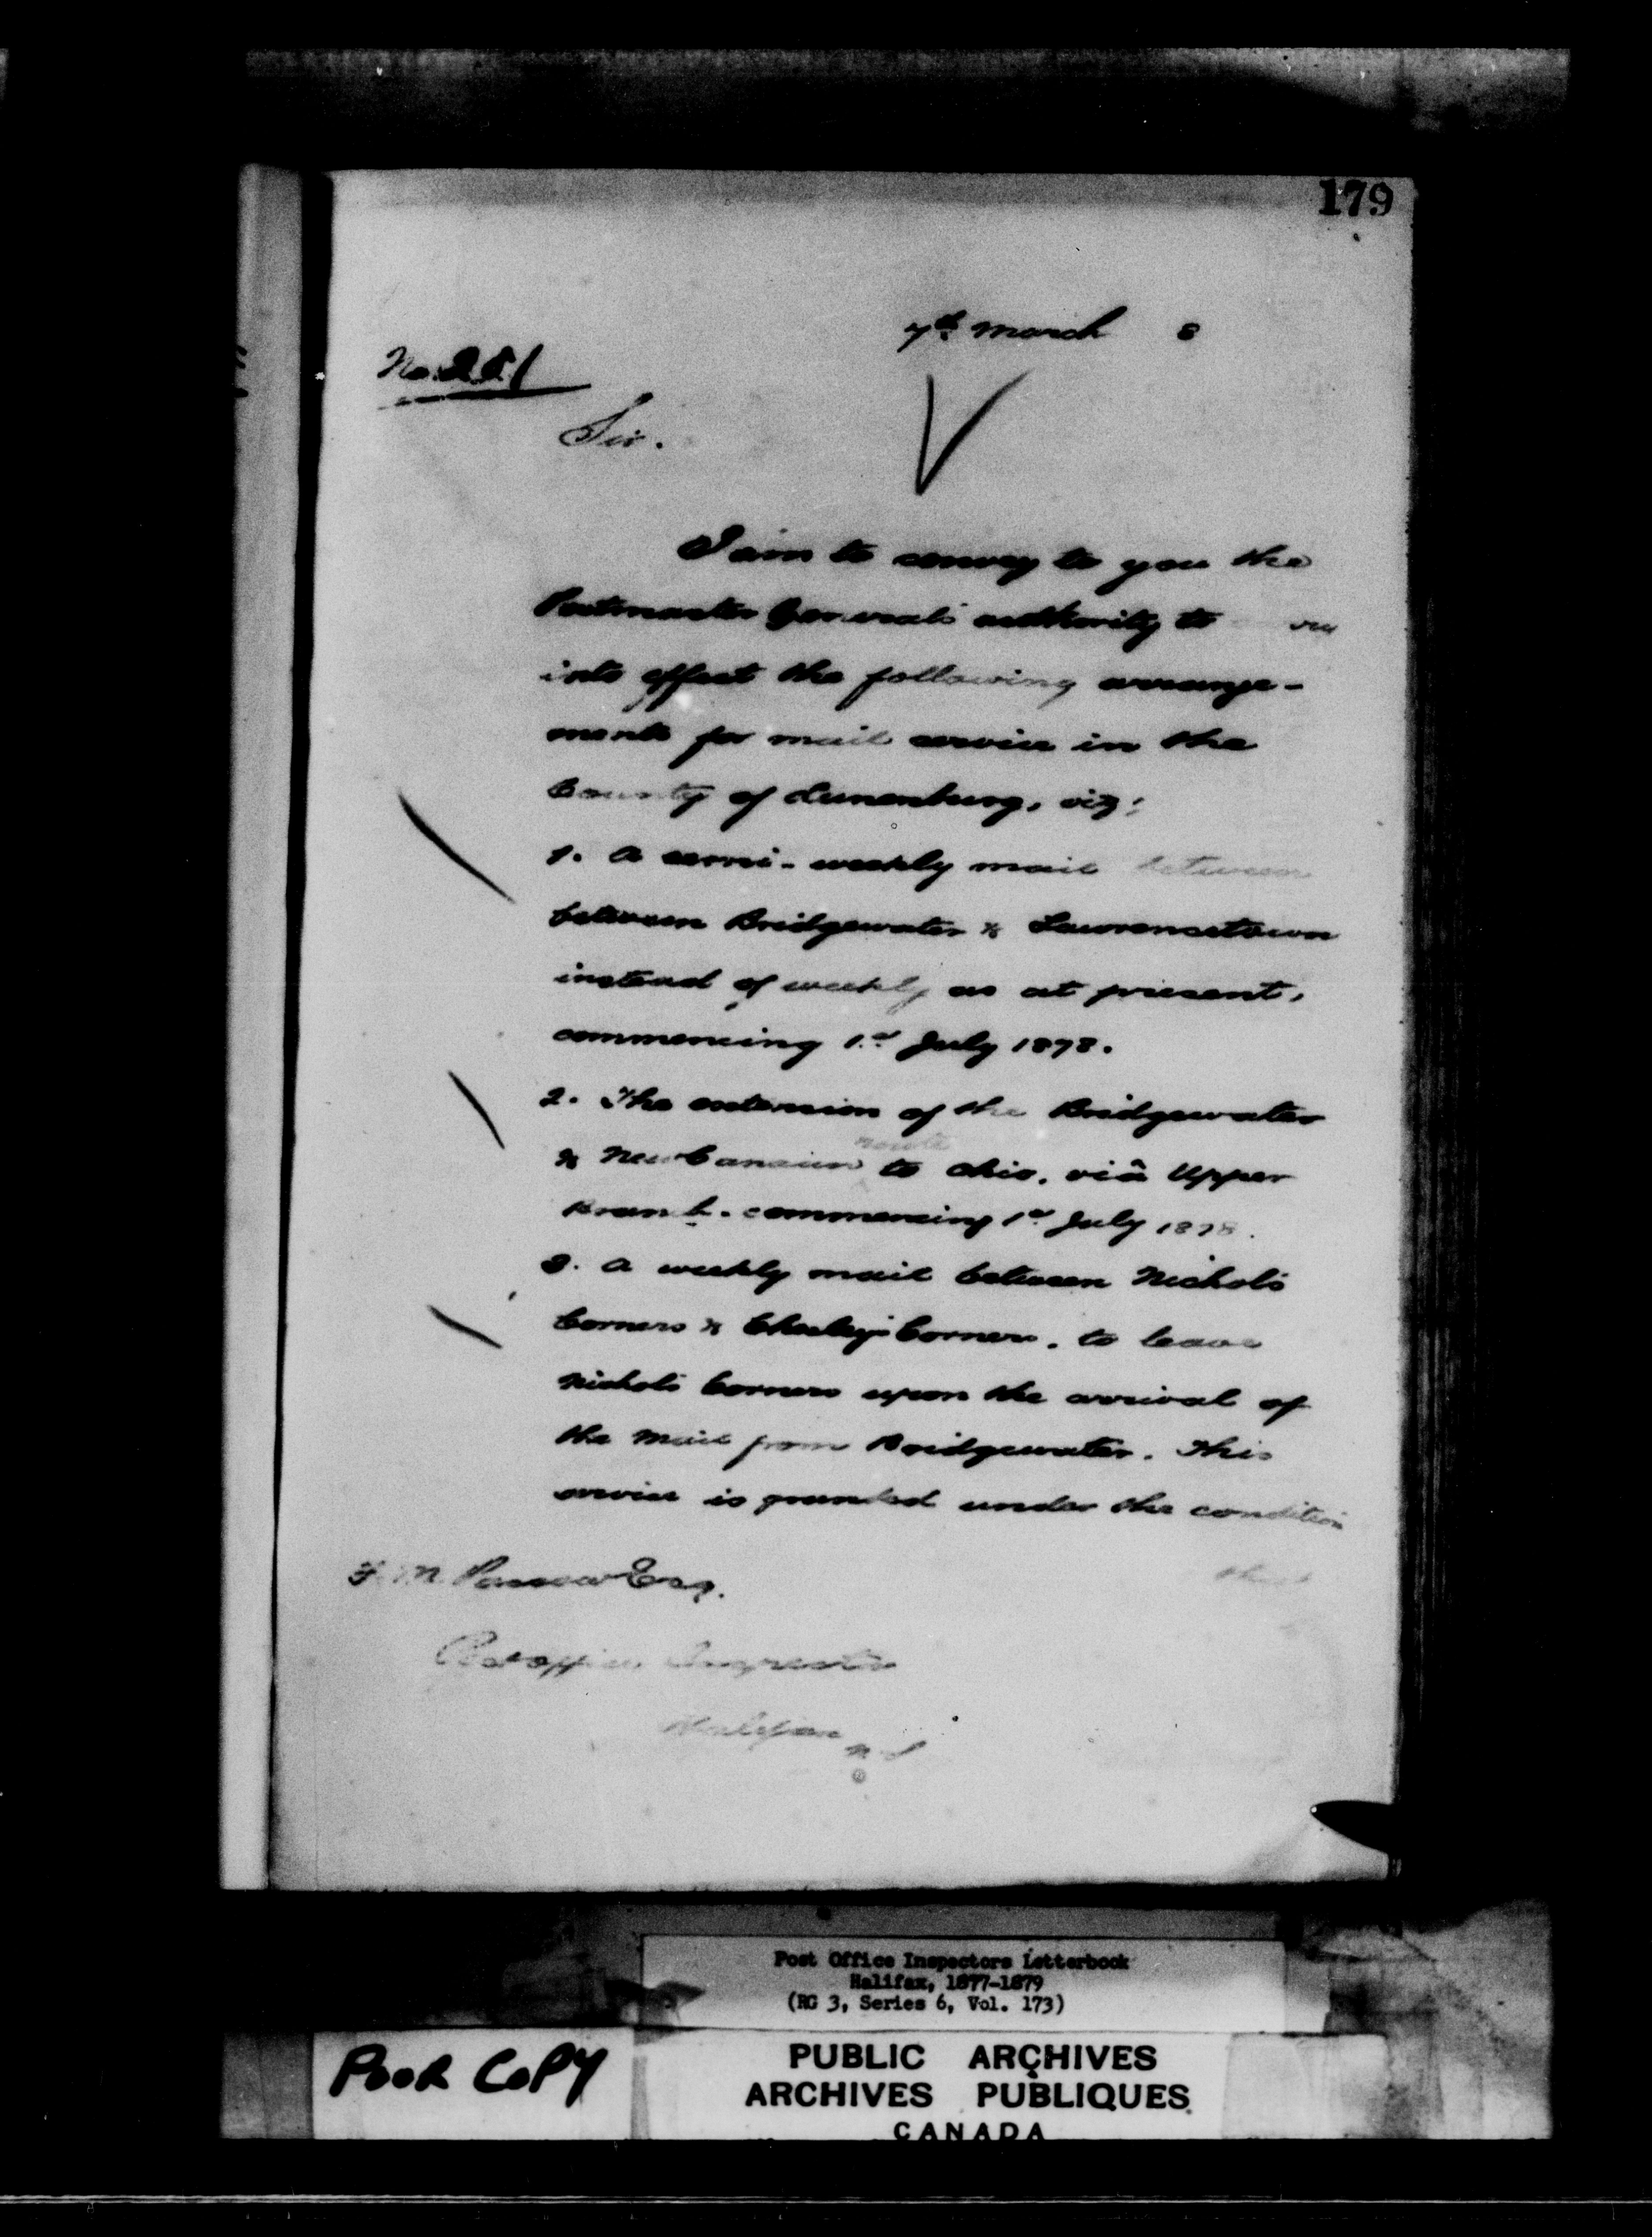 179
7th March 8
No. 251
Sir.
I am to convey to you the
Postmaster General's authority to
into effect the following arrange-
ments for mail service in the
County of Lunenburg, viz:
1. A semi-weekly mail between
between Bridgewater & Lawrencetown
instead of weekly as at present,
commencing 1st July 1878.
2. The extension of the Bridgewater
route
& New Canaan to Ohio, viâ Upper
Branch. commencing 1st July 1878.
3. A weekly mail between Nichols
Corners & Corners, to leave
Nichols Corners upon the arrival of
the Mail from Bridgewater. This
service is granted under the condition
that
F. M. Passow Esq.
Post office Inspector
Halifax
N S
Post Office Inspectors Letterbook
Halifax, 1877-1879
(RG 3, Series 6, Vol. 173)
POOR COPY
PUBLIC ARCHIVES
ARCHIVES PUBLIQUES
CANADA